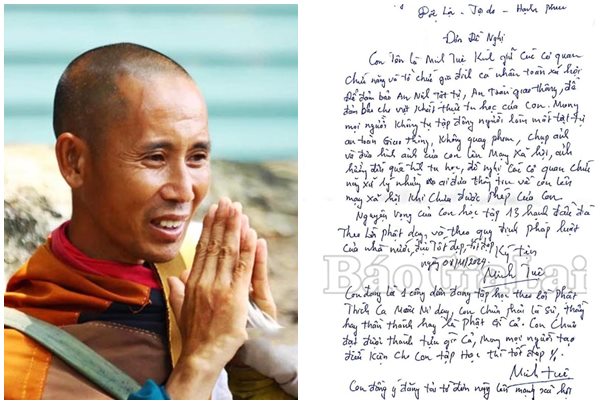 Độc Lập - Tự do - Hạnh phúc
Đơn Đề Nghị
Con Tên là Minh Tuệ Kính gửi Các cơ quan
chức năng và tổ chức gia đình cá nhân toàn xã hội
Để đảm bảo An Ninh Trật tự, An Toàn giao thông, để
đảm bảo cho việc thực tu học của Con. Mong
mọi người Không tụ tập đông người làm mất trật tự
an toàn Giao thông, Không quay phim, chụp ảnh
và đưa hình ảnh của con lên Mạng Xã hội, ảnh
hưởng đến quá trình tu học, đề nghị Các cơ quan chức
năng xử lý những ai đưa thông tin về con lên
mạng xã hội Khi Chưa được Phép của Con
Nguyện vọng của Con học tập 13 hạnh đầu đà
Theo Lời phật dạy, và theo quy định pháp luật
của nhà nước, đời tốt đẹp,
Ký Tên
ngày
Minh Tuệ
Báo Gia Lai
Con đang là 1 công dân đang tập học theo lời phật
Thích Ca Mâu Ni dạy, con Chưa phải là Sư, thầy
hay thần thánh hay là phật gì cả. Con Chưa
đạt được thành tựu gì cả, mong mọi người tạo
điều Kiện Cho Con tập Học thì tốt đẹp
Minh Tuệ
Con đồng ý đăng tải tờ đơn này lên mạng xã hội